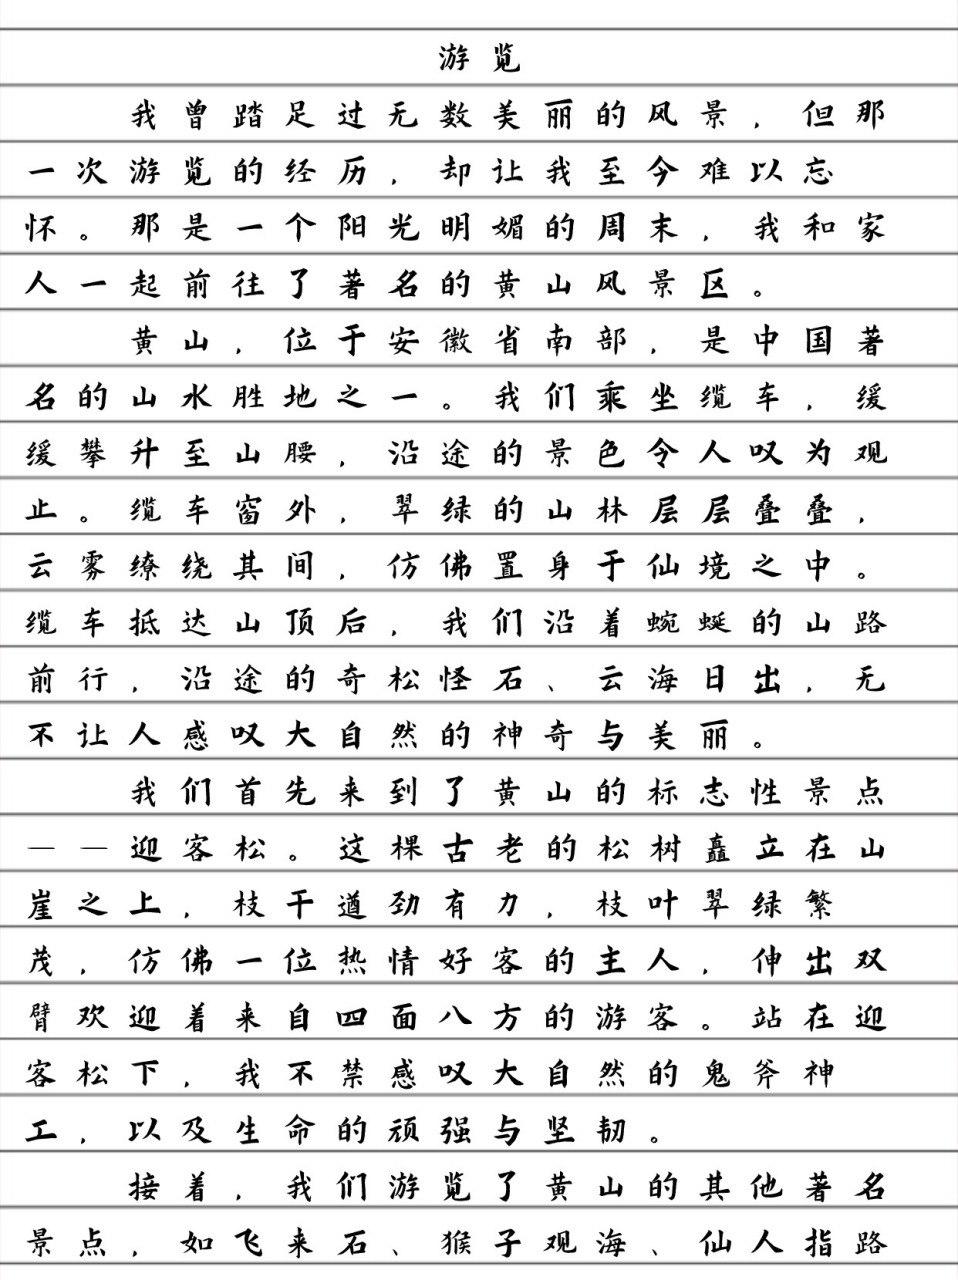 游览
我曾踏足过无数美丽的风景，但那
一次游览的经历，却让我至今难以忘
怀。那是一个阳光明媚的周末，我和家
人一起前往了著名的黄山风景区。
黄山，位于安徽省南部，是中国著
名的山水胜地之一。我们乘坐缆车，缓
缓攀升至山腰，沿途的景色令人叹为观
止。缆车窗外，翠绿的山林层层叠叠，
云雾缭绕其间，仿佛置身于仙境之中。
缆车抵达山顶后，我们沿着蜿蜒的山路
前行，沿途的奇松怪石、云海日出，无
不让人感叹大自然的神奇与美丽。
我们首先来到了黄山的标志性景点
——迎客松。这棵古老的松树矗立在山
崖之上，枝干遒劲有力，枝叶翠绿繁
茂，仿佛一位热情好客的主人，伸出双
臂欢迎着来自四面八方的游客。站在迎
客松下，我不禁感叹大自然的鬼斧神
工，以及生命的顽强与坚韧。
接着，我们游览了黄山的其他著名
景点，如飞来石、猴子观海、仙人指路